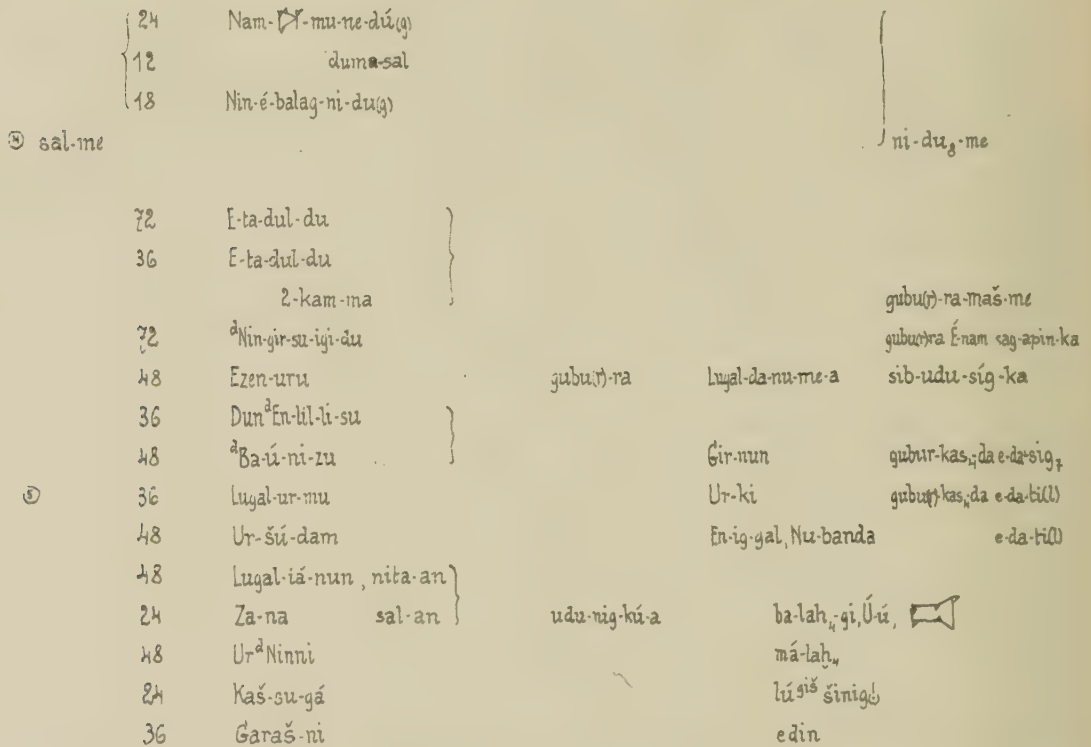 24 Nam- -mu-ne-dú(g)
12 duma-sal
18 Nin-é-balag-ni-du(g)
④ sal-me ni-du₈-me
72 E-ta-dul-du
36 E-ta-dul-du
2-kam-ma gubu(r)-ra-maš-me
72 ᵈNin-gir-su-igi-du gubu(r)ra É-nam sag-apin-ka
48 Ezen-uru gubu(r)-ra Lugal-da-nu-me-a sib-udu-síg-ka
36 DunᵈEn-lil-li-su
48 ᵈBa-ú-ni-zu Gir-nun gubur-kas₄-da e-da-sig₇
⑤ 36 Lugal-ur-mu Ur-ki gubu(r)-kas₄-da e-da-ti(l)
48 Ur-šú-dam En-ig-gal, Nu-banda e-da-ti(l)
48 Lugal-iá-nun, nita-an
24 Za-na sal-an udu-nig-kú-a ba-laḫ₄-gi, Ú-ú,
48 UrᵈNinni má-laḫ₄
24 Kaš-su-gá lú ᵍⁱˢ šinig
36 Garaš-ni edin